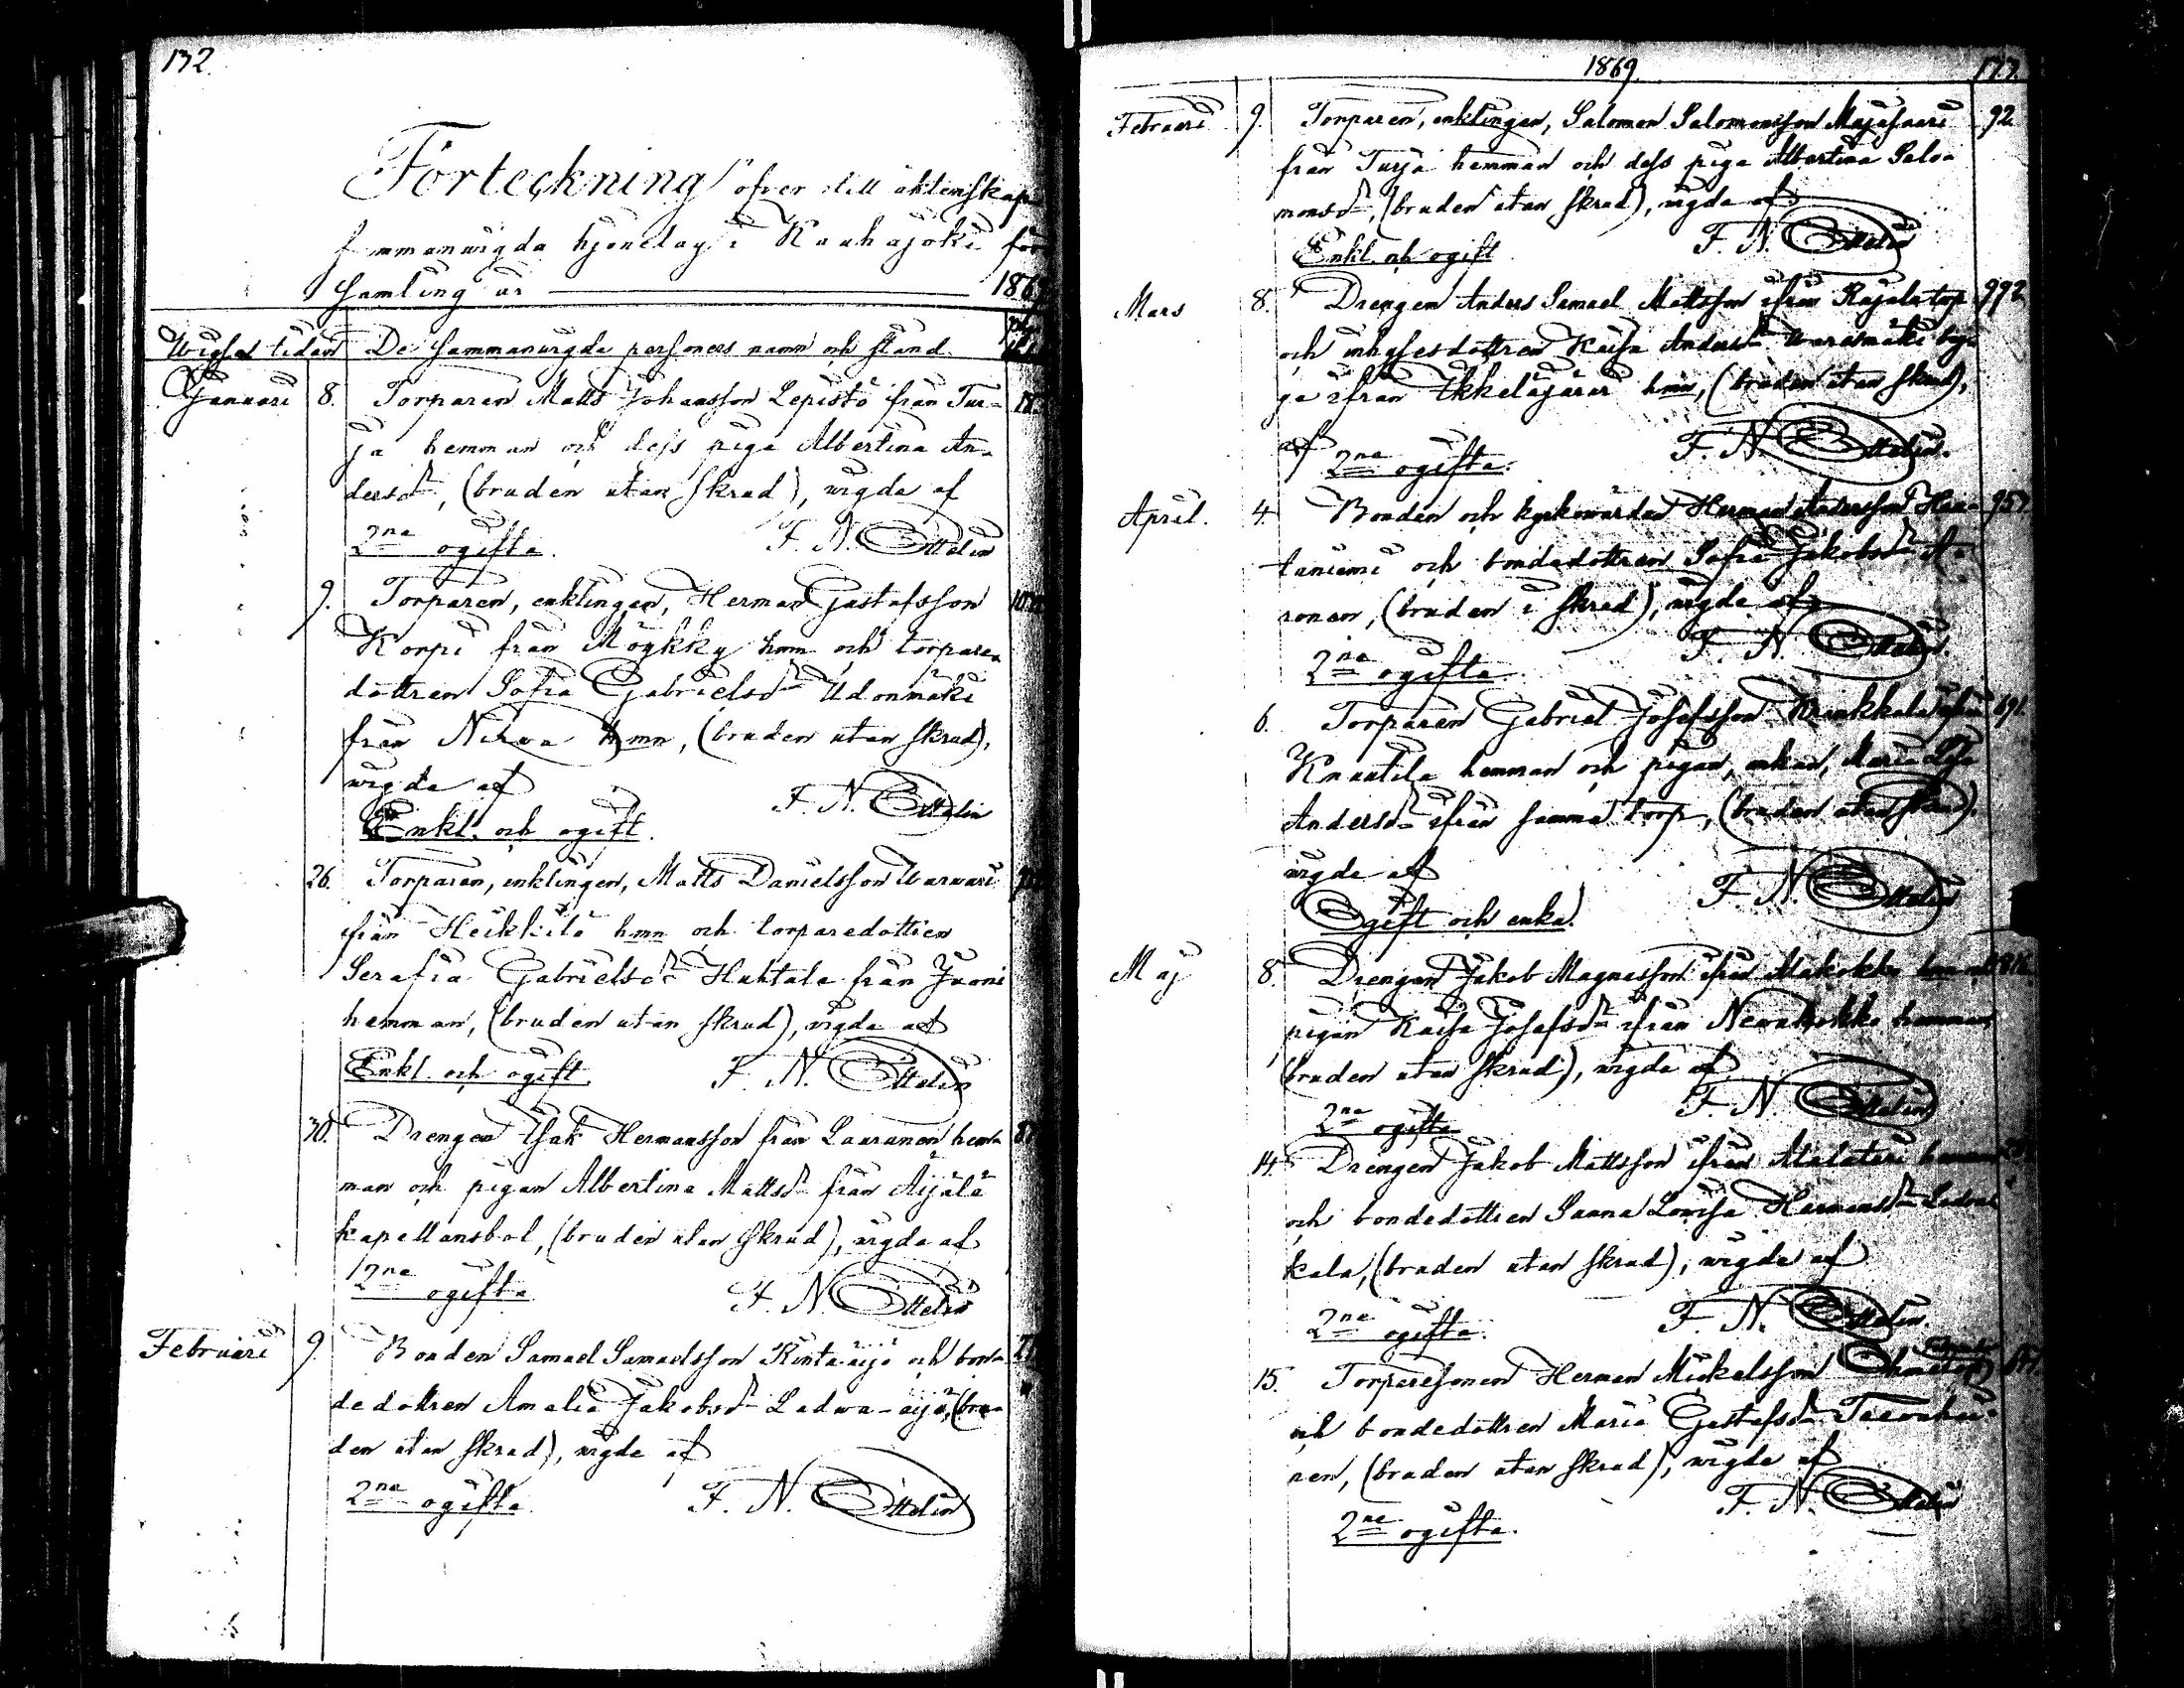 132.
Förteckning öfver till äktenskap
sammanvigda hjonelag i Kauhajoki för
samling år 1869
Wigsel tiden De sammanvigda personers namn och stånd.
Januari 8. Torparen Matts Johansson Lepistö från Tur-
ja hemman och dess piga Albertina An-
dersdr, (bruden utan skrud), vigda af
2ne ogifta. F. N. Ottelin
9. Torparen, enklingen, Herman Gustafsson
Korpi från Möykky hmn och torpare
dottren Sofia Gabrielsdr Udonmäki
från Nirva hmn, (bruden utan skrud),
vigda af F. N. Ottelin
Enkl. och ogift.
26. Torparen, enklingen, Matts Danielsson Warvari
från Heikkilä hmn och torparedottren
Serafia Gabrielsdr Huhtala från Juoni
hemman, (bruden utan skrud), vigda af
Enkl. och ogift. F. N. Ottelin
30. Drengen Isak Hermansson från Lauranen hem-
man och pigan Albertina Mattsdr från Äijälä
kapellansbol, (bruden utan skrud), vigda af
2ne ogifta F. N. Ottelin
Februari 9. Bonden Samuel Samuelsson Rinta-äijö och bon-
dedottren Amalia Jakobsdr Ladwa-äijö, (bru-
den utan skrud), vigda af
2ne ogifta. F. N. Ottelin
1869. 133.
Februari 9. Torparen, enklingen, Salomon Salomonsson Majasaari 92
från Turja hemman och dess piga Albertina Salo-
monsdr, (bruden utan skrud), vigda af
Enkl. och ogift F. N. Ottelin
Mars 8. Drengen Anders Samuel Mattsson ifrån Rajala torp 992
och inhysesdottren Kaisa Andersdr Waresmäki
ifrån Ikkeläjärvi hmn, (bruden utan skrud),
af 2ne ogifta. F. N. Ottelin.
April. 4. Bonden och kyrkovärden Herman Andersson Han- 957.
taniemi och bondedottren Sofia Jakobsdr A-
ronen, (bruden i skrud), vigda af
2ne ogifta. F. N. Ottelin.
6. Torparen Gabriel Josefsson ifrån 691.
Knuutila hemman och pigan, enkan, Maria Lisa
Andersdr ifrån samma torp, (bruden utan skrud),
vigda af F. N. Ottelin
Ogift och enka.
Maj 8. Drengen Jakob Magnusson ifrån
pigan Kaisa Josefsdr ifrån hemman
(bruden utan skrud), vigda af
2ne ogifta F. N. Ottelin
14. Drengen Jakob Mattsson ifrån Alalatari hemman
och bondedottren Sanna Lovisa Hermansdr
kala, (bruden utan skrud), vigda af
2ne ogifta. F. N. Ottelin.
15. Torparesonen Herman Mickelsson
och bondedottren Maria Gustafsdr
nen, (bruden utan skrud), vigda af
2ne ogifta. F. N. Ottelin